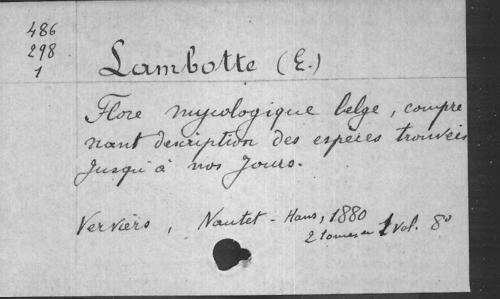 486
298
1
Lambotte (E.)
Flore mycologique belge, compre
nant description des espèces trouvées
jusqu'à nos jours.
Verviers, Nautet-Hans, 1880
2 tomes en 1 vol. 8°